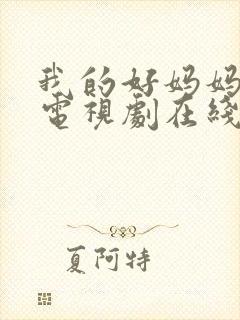 我的好妈妈
電視劇在綫
夏阿特